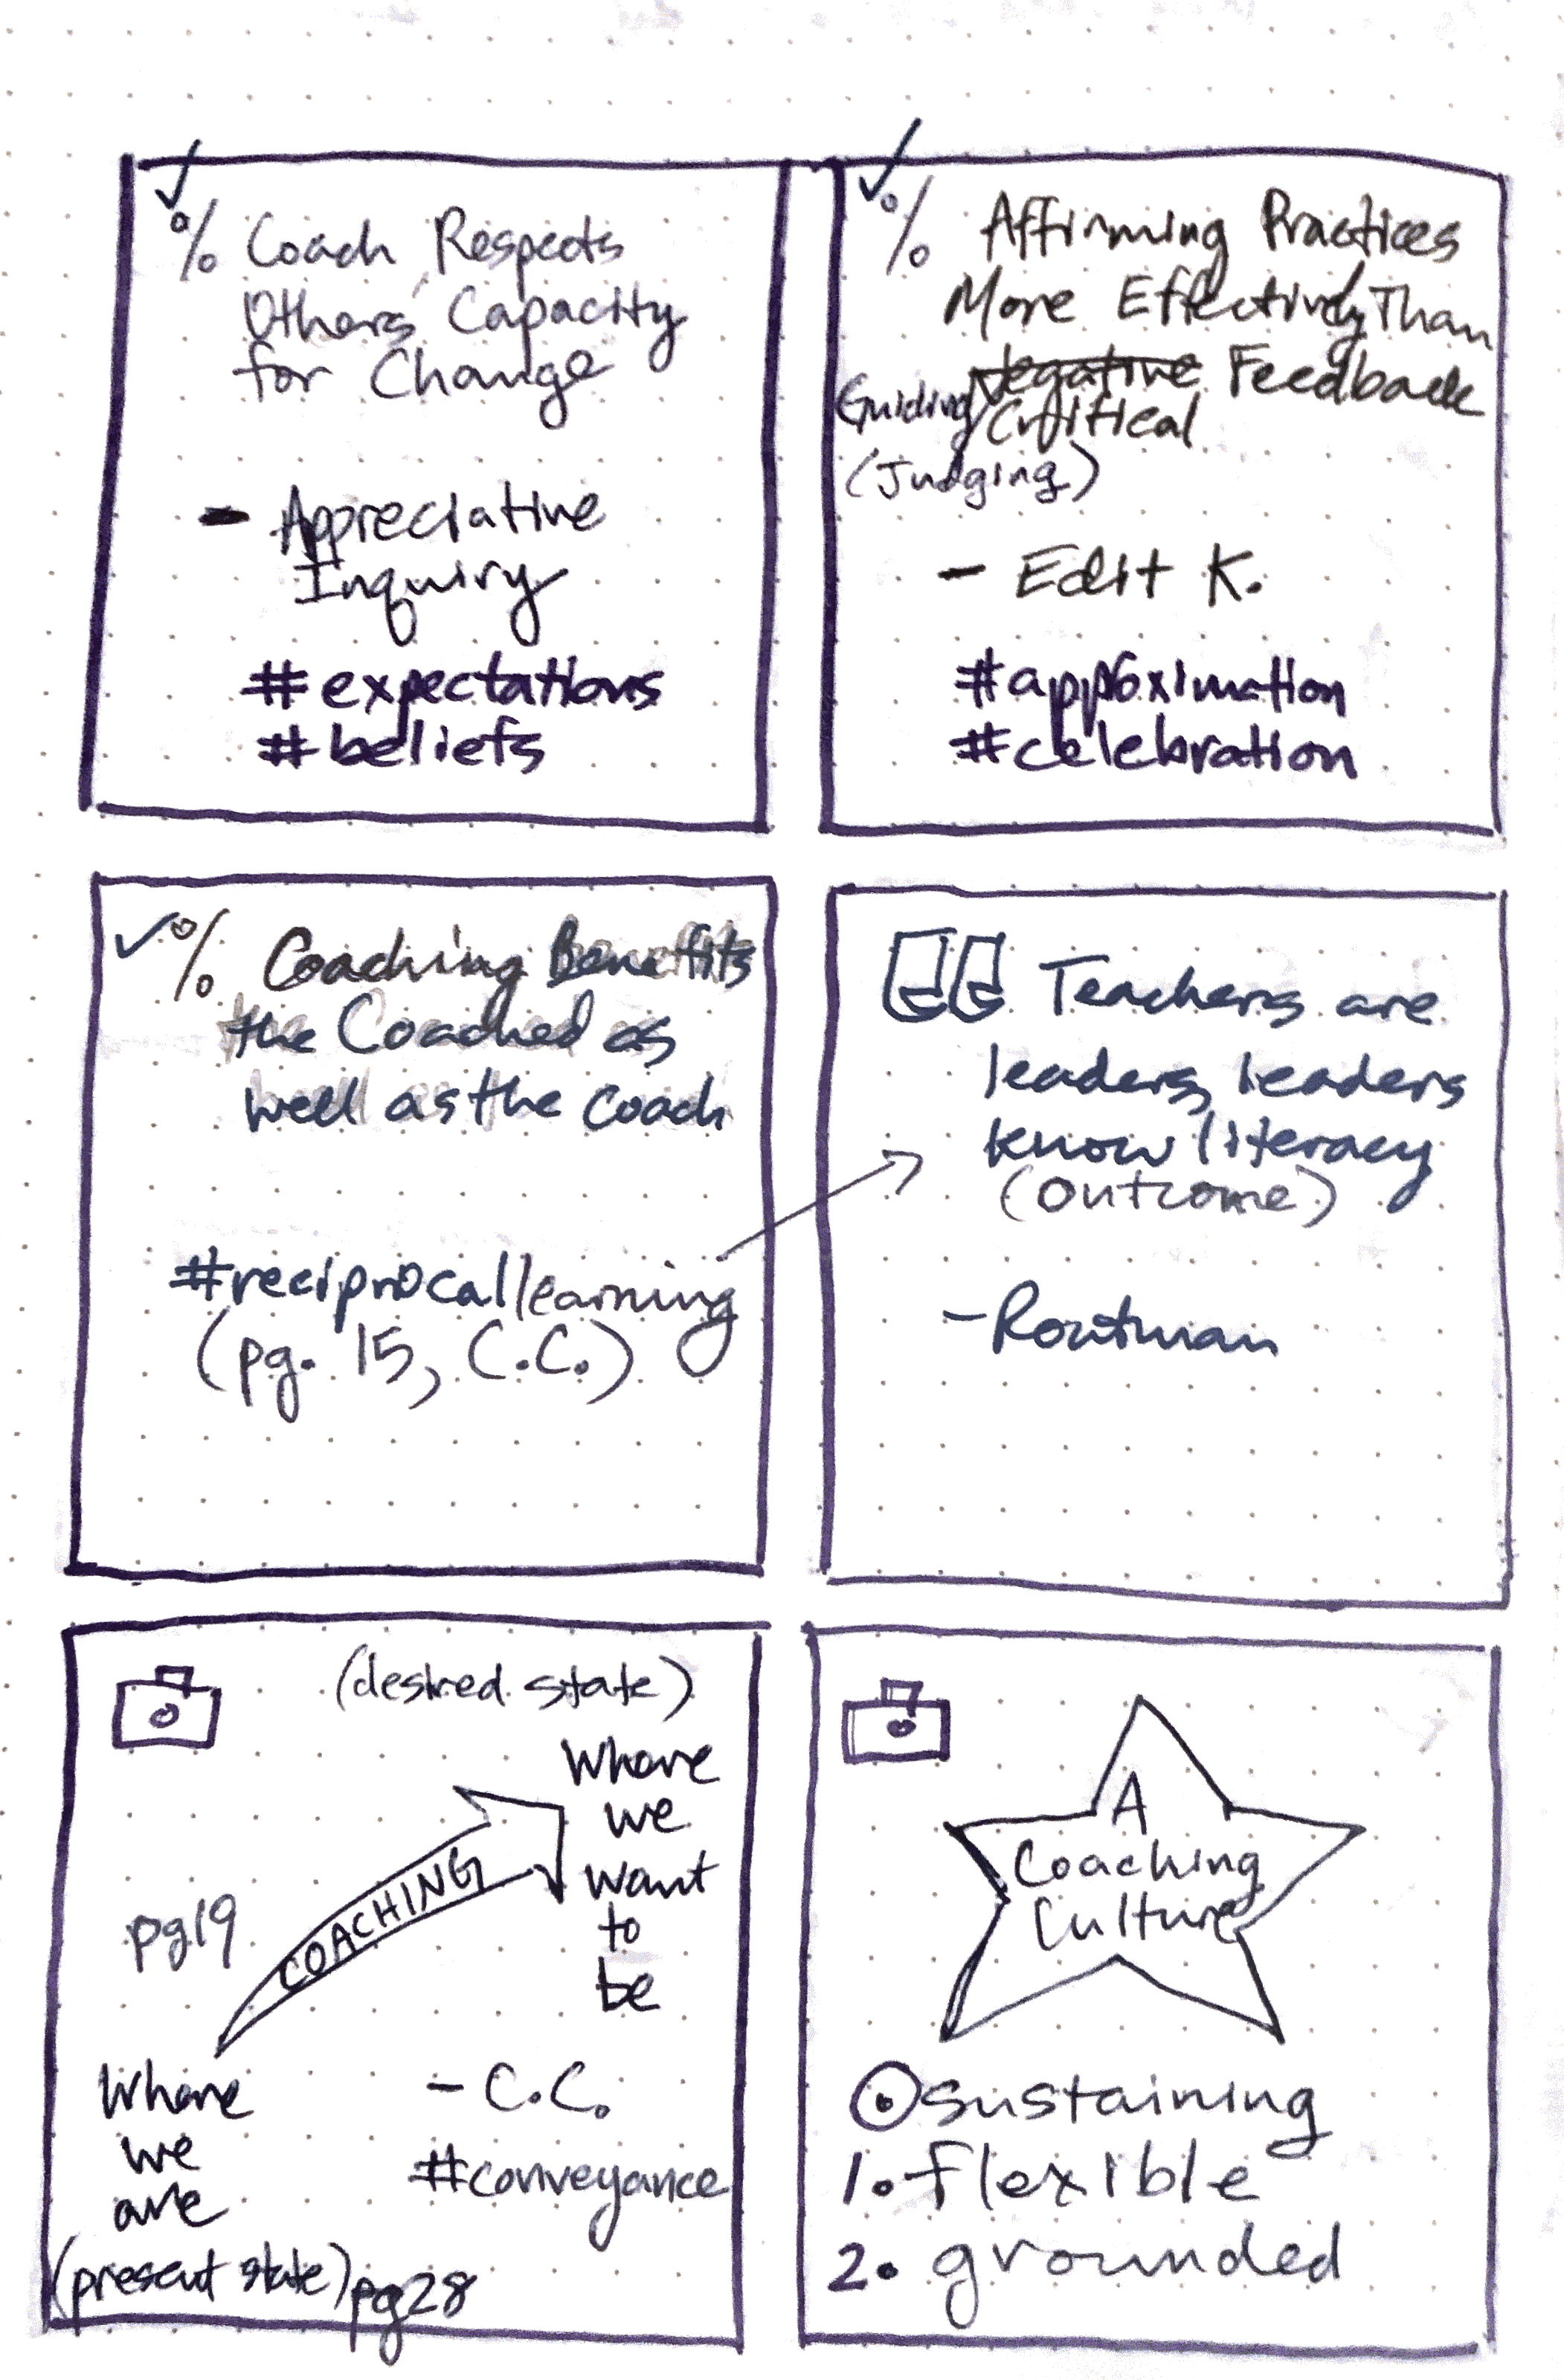 ✓
% Coach Respects
Others' Capacity
for Change
- Appreciative
Inquiry
#expectations
#beliefs
✓
% Affirming Practices
More Effectively Than
Guiding/ Negative Feedback
Critical
(Judging)
- Edit K.
#approximation
#celebration
✓% Coaching Benefits
the Coached as
well as the Coach
#reciprocallearning
(pg. 15, C.C.)
Teachers are
leaders, leaders
know literacy
(outcome)
- Routman
(desired state)
Where
we
want
to
be
COACHING
pg19
Where
we
are
(present state) pg28
- C.C.
#conveyance
A
Coaching
Culture
sustaining
1. flexible
2. grounded